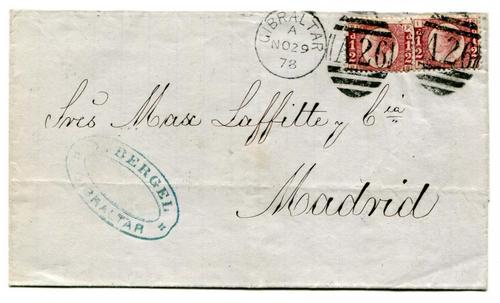 GIBRALTAR
A
NO29
78
A26 A26
Sres Max Laffitte y Cia
Madrid
BERGEL
GIBRALTAR